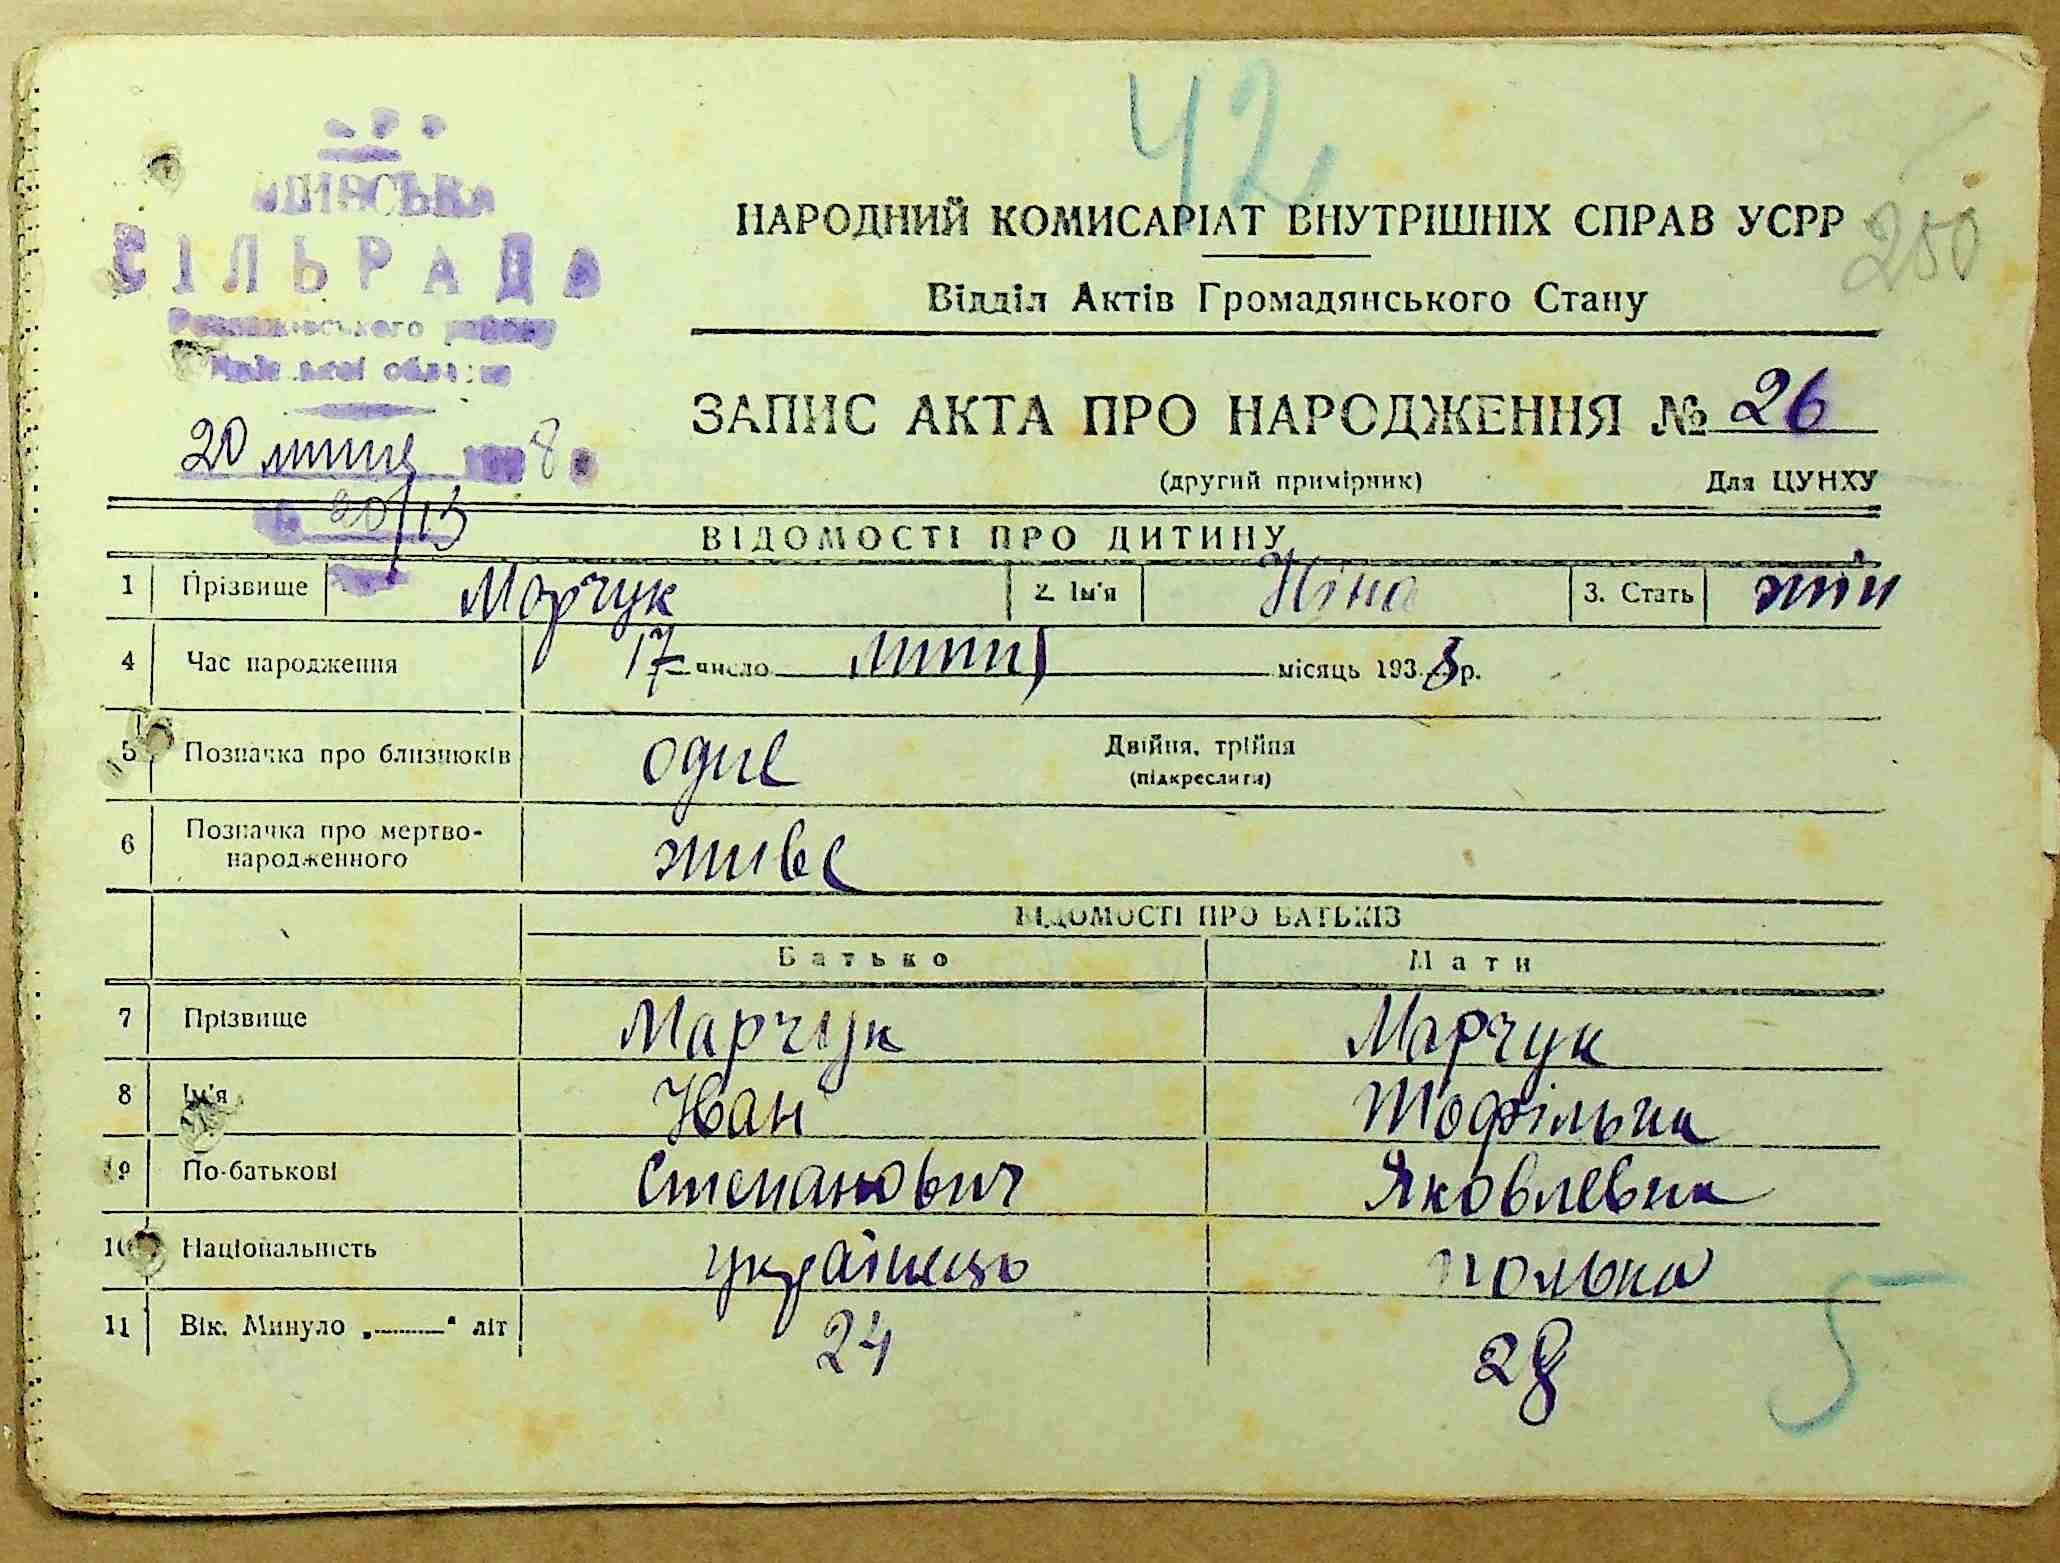 42
НАРОДНИЙ КОМИСАРІАТ ВНУТРІШНІХ СПРАВ УСРР
250
СІЛЬРАДА
району
Відділ Актів Громадянського Стану
ЗАПИС АКТА ПРО НАРОДЖЕННЯ № 26
20 липця 193 8 р.
(другий примірник) Для ЦУНХУ
20/13
ВІДОМОСТІ ПРО ДИТИНУ
1 Прізвище Марчук 2. Ім'я Ніна 3. Стать жін
4 Час народження 17 число липця місяць 1938 р.
5 Позначка про близнюків одне Двійня, трійня
(підкреслити)
6 Позначка про мертво-
народженного живе
ВІДОМОСТІ ПРО БАТЬКІВ
Батько Мати
7 Прізвище Марчук Марчук
8 Ім'я Иван Тофільна
9 По-батькові Степанович Яковлевна
10 Національність українець полька
11 Вік. Минуло „ “ літ 24 28
5